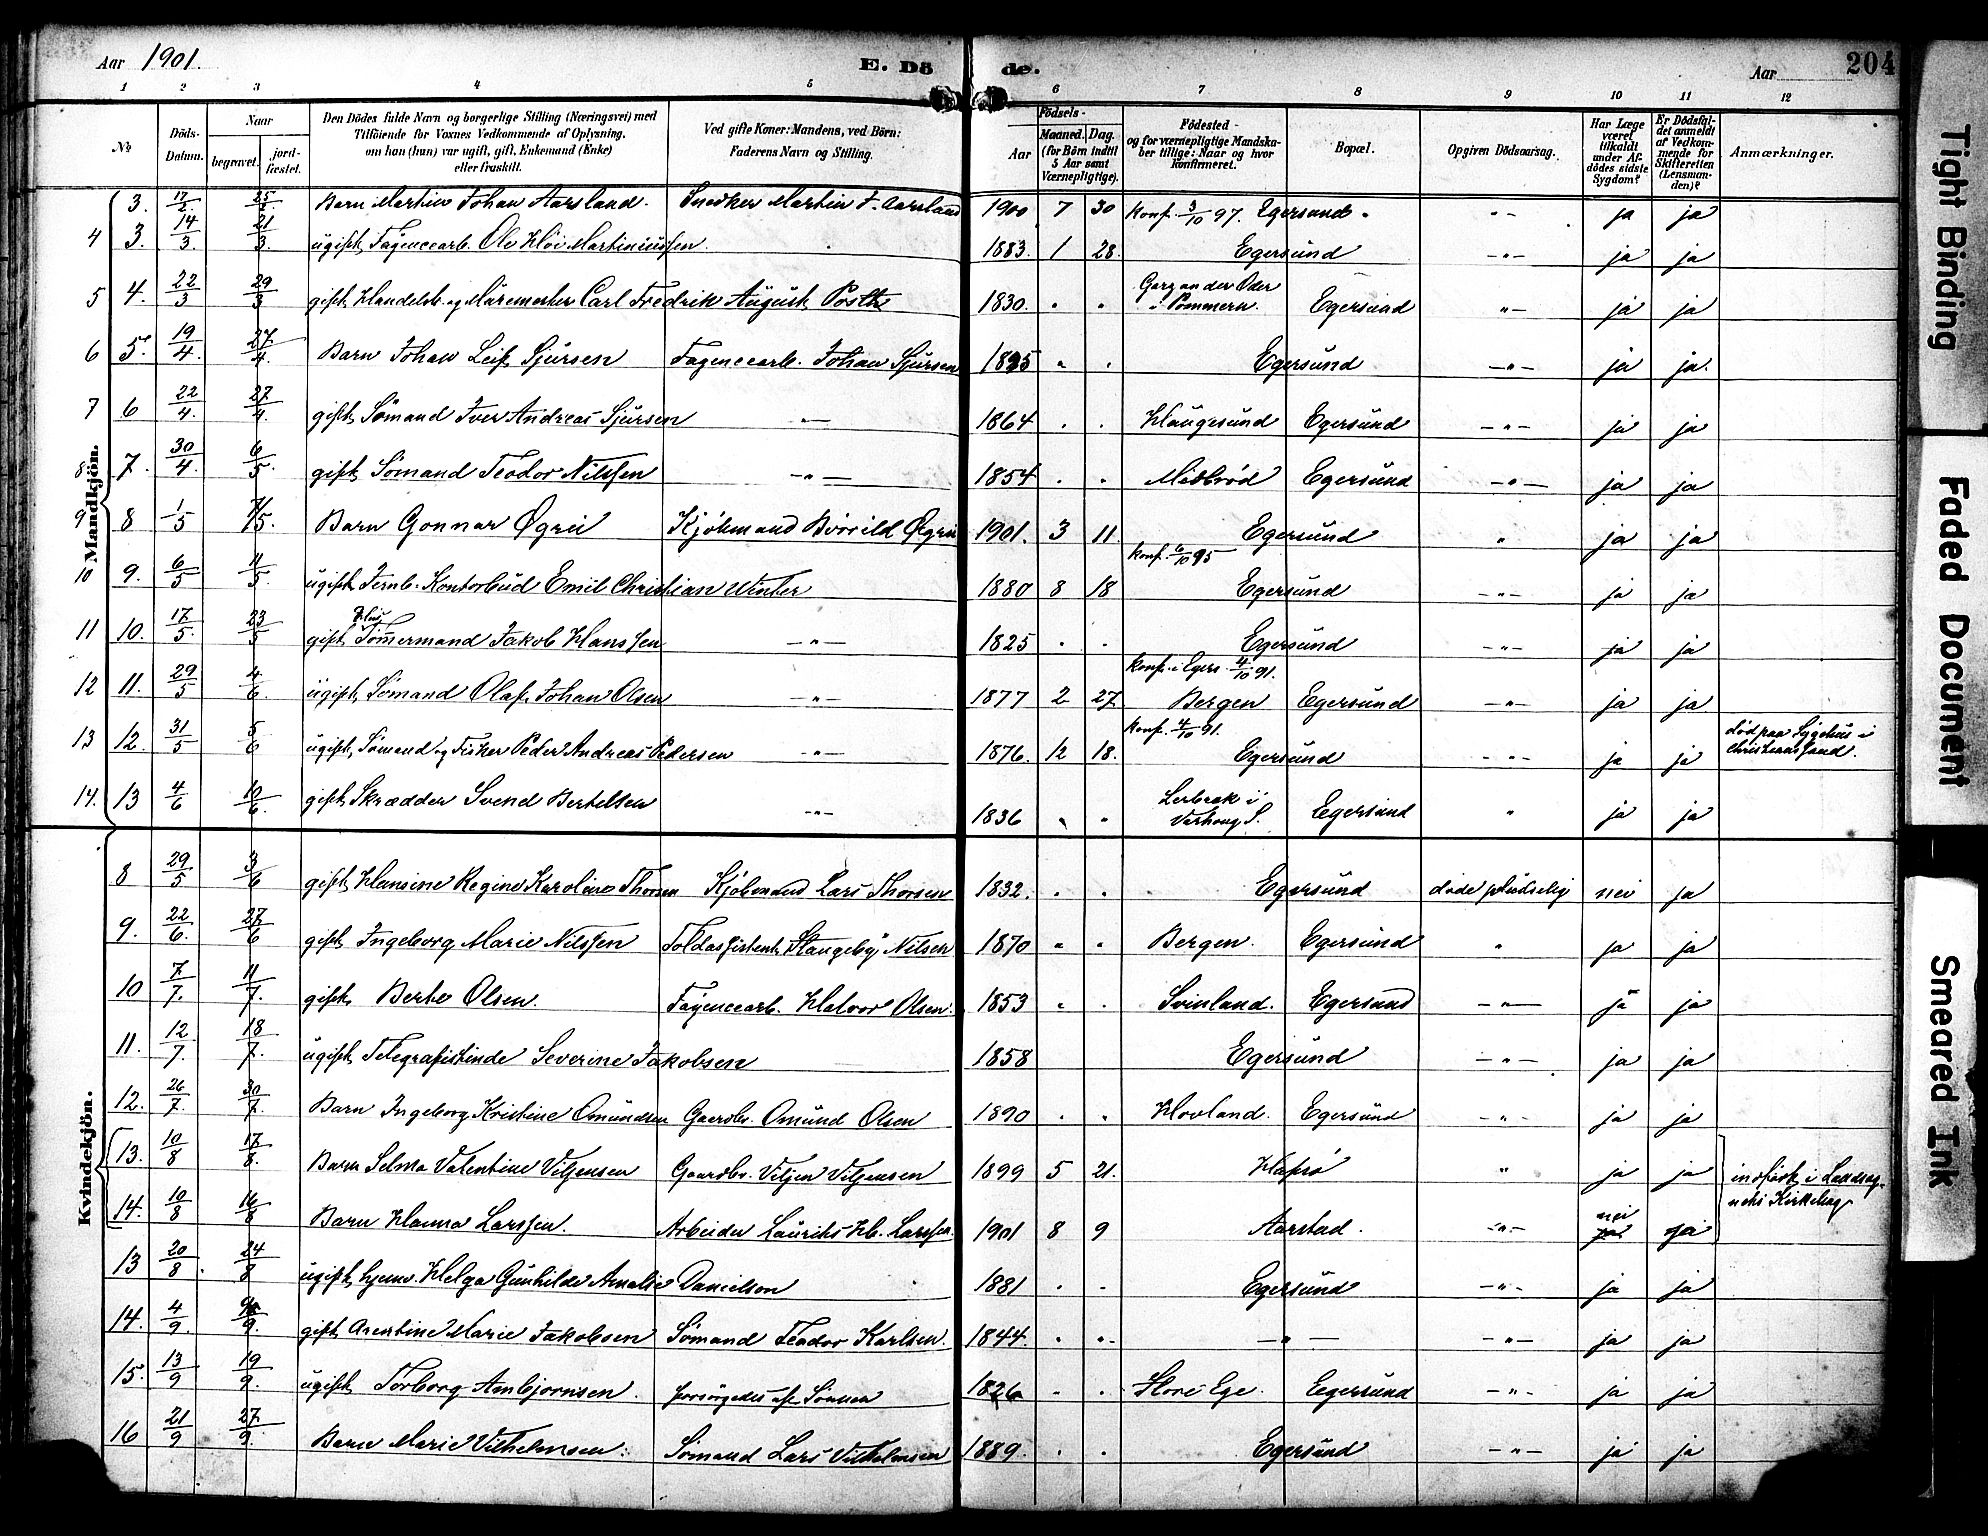 Aar 1901. E. Dö de. Aar 204
1 2 3 4 5 6 7 8 9 10 11 12
No
Döds-Datum.
Naar
begravet.
jord-fæstet.
Den Dödes fulde Navn og borgerlige Stilling (Næringsvei) med
Tilföiende for Voxnes Vedkommende af Oplysning,
om han (hun) var ugift, gift, Enkemand (Enke)
eller fraskilt.
Ved gifte Koner: Mandens, ved Börn:
Faderens Navn og Stilling.
Födsels-
Aar
Maaned. Dag.
(for Börn indtil
5 Aar samt
Værnepligtige).
Födested -
og for værnepligtige Mandska-
ber tillige: Naar og hvor
konfirmeret.
Bopæl.
Opgiven Dödsaarsag.
Har Læge
været
tilkaldt
under Af-
dödes sidste
Sygdom?
Er Dödsfal-
det anmeldt
af Vedkom-
mende for
Skifteretten
(Lensman-
den)?
Anmærkninger.
Mandkjön.
3. 17/2 25/2 Barn Martin Johan Aarsland. Snedker Martin J. Aarsland 1900 7 30 Egersund " ja ja
4 3. 14/3 21/3 ugift, Fayencearb. Ole Kloi Martiniussen 1883. 1 28. Konf. 3/10 97. Egersund -"- ja ja
5 4. 22/3 29/3 gift, Handelsb. og Maremester Carl Fredrik August Posth 1830. " " Garz an der Oder i Pommern. Egersund -"- ja ja
6 5. 19/4. 27/4. Barn Johan Leif Sjursen Fayencearb. Johan Sjursen 1895 " " Egersund -"- ja ja.
7 6 22/4. 27/4. gift, Sömand Iver Andreas Sjursen -"- 1864 " " Haugesund Egersund -"- ja ja
8 7. 30/4. 6/5. gift, Sömand Teodor Nilssen -"- 1854 " " Midbrød Egersund -"- ja ja
9 8 1/5 7/5. Barn Gonnar Øgrei Kjöbmand Bövrild Øgrei 1901. 3 11 Egersund " ja ja
10 9. 6/5 11/5. ugift, Jernb. Kontorbud Emil Christian Winter 1880 8 18 konf. 6/10 95 Egersund -"- ja ja
11 10. 17/5. 23/5 gift, Tömermand Jakob Hanssen -"- 1825 " " Egersund -"- ja ja
12 11. 29/5 4/6 ugift, Sömand Olaf Johan Olsen -"- 1877 2 27. konf. i Egers. 4/10 91. Bergen Egersund -"- ja ja
13 12. 31/5 5/6 ugift, Sömand og Fisker Peder Andreas Pedersen -"- 1876. 12 18. konf. 4/10 91. Egersund -"- ja ja död paa Sygehus i Christianssand.
14. 13 4/6 10/6. gift, Skrædder Svend Bertelsen -"- 1836 " " Lerbrek i Varhoug S. Egersund " ja ja
Kvindekjön.
8 29/5 3/6 gift, Hansine Regine Karoline Thorsen Kjöbmand Lars Thorsen 1832. " " Egersund døde pludselig nei ja
9. 22/6. 27/6 gift, Ingeborg Marie Nilssen Toldassistent Stangeby Nilsen 1870 " " Bergen. Egersund " ja ja
10 7/7. 11/7. gift, Berte Olsen. Fayencearb. Halvor Olsen. 1853 " " Svinland. Egersund -"- ja ja
11. 12/7. 18/7. ugift, Telegrafistinde Severine Jakobsen 1858 Egersund -"- ja ja
12. 26/7. 30/7. Barn Ingeborg Kristine Omundsen Gaardbr. Omund Olsen 1890 " " Hovland. Egersund -"- ja ja
13. 10/8 17/8. Barn Selma Valentine Viljemsen Gaardbr. Viljem Viljemsen 1899 5 21. Hafsö " ja ja
14. 10/8 16/8 Barn Hanna Larssen. Arbeider Laurits Hb. Larssen. 1901 8 9 Aarstad. -"- nei ja ja
indført i Landsog-nets Kirkebog
13 20/8. 24/8 ugift, hjemv. Helga Gunhilde Amalie Danielson 1881 " " Egersund -"- ja ja
14. 4/9. 9/9. gift, Arentine Marie Jakobsen Sömand Teodor Karlsen. 1844. " " -"- -"- ja ja
15. 13/9 19/9. ugift, Torborg Ambjornsen. forsörgedes af Sönnen 1826 " " Store Ege. Egersund -"- ja ja
16 21/9 27/9. Barn Marie Vilhelmsen. Sömand Lars Vilhelmsen 1889. " " Egersund -"- ja ja
Tight Binding
Faded Document
Smeared Ink